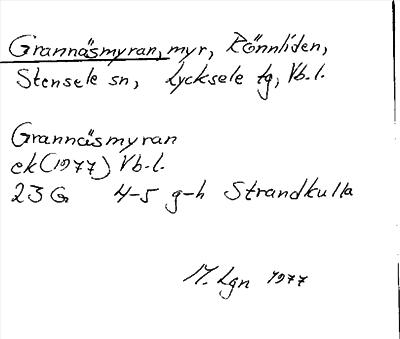 Grannäsmyran, myr, Rönnliden,
Stensele sn, Lycksele tg, Vb.l.
Grannäsmyran
ek (1977) Vb.l.
23 G 4-5 g-h Strandkulla
M. Lgn 1977